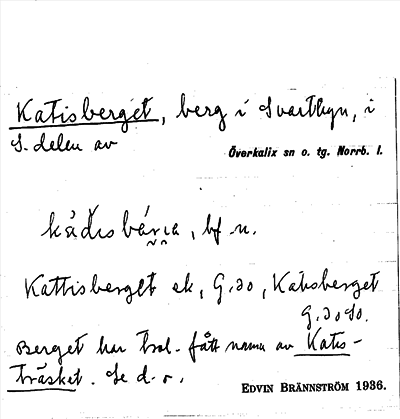 Katisberget, berg i Svartbyn, i
S. delen av
Överkalix sn o. tg. Norrb. l.
kàdɩsbǽrɩa, bf n.
Kattisberget ek, G.30, Katisberget
G.30 So.
Berget har trol. fått namn av Katis-
träsket. Se d. o.
EDVIN BRÄNNSTRÖM 1936.